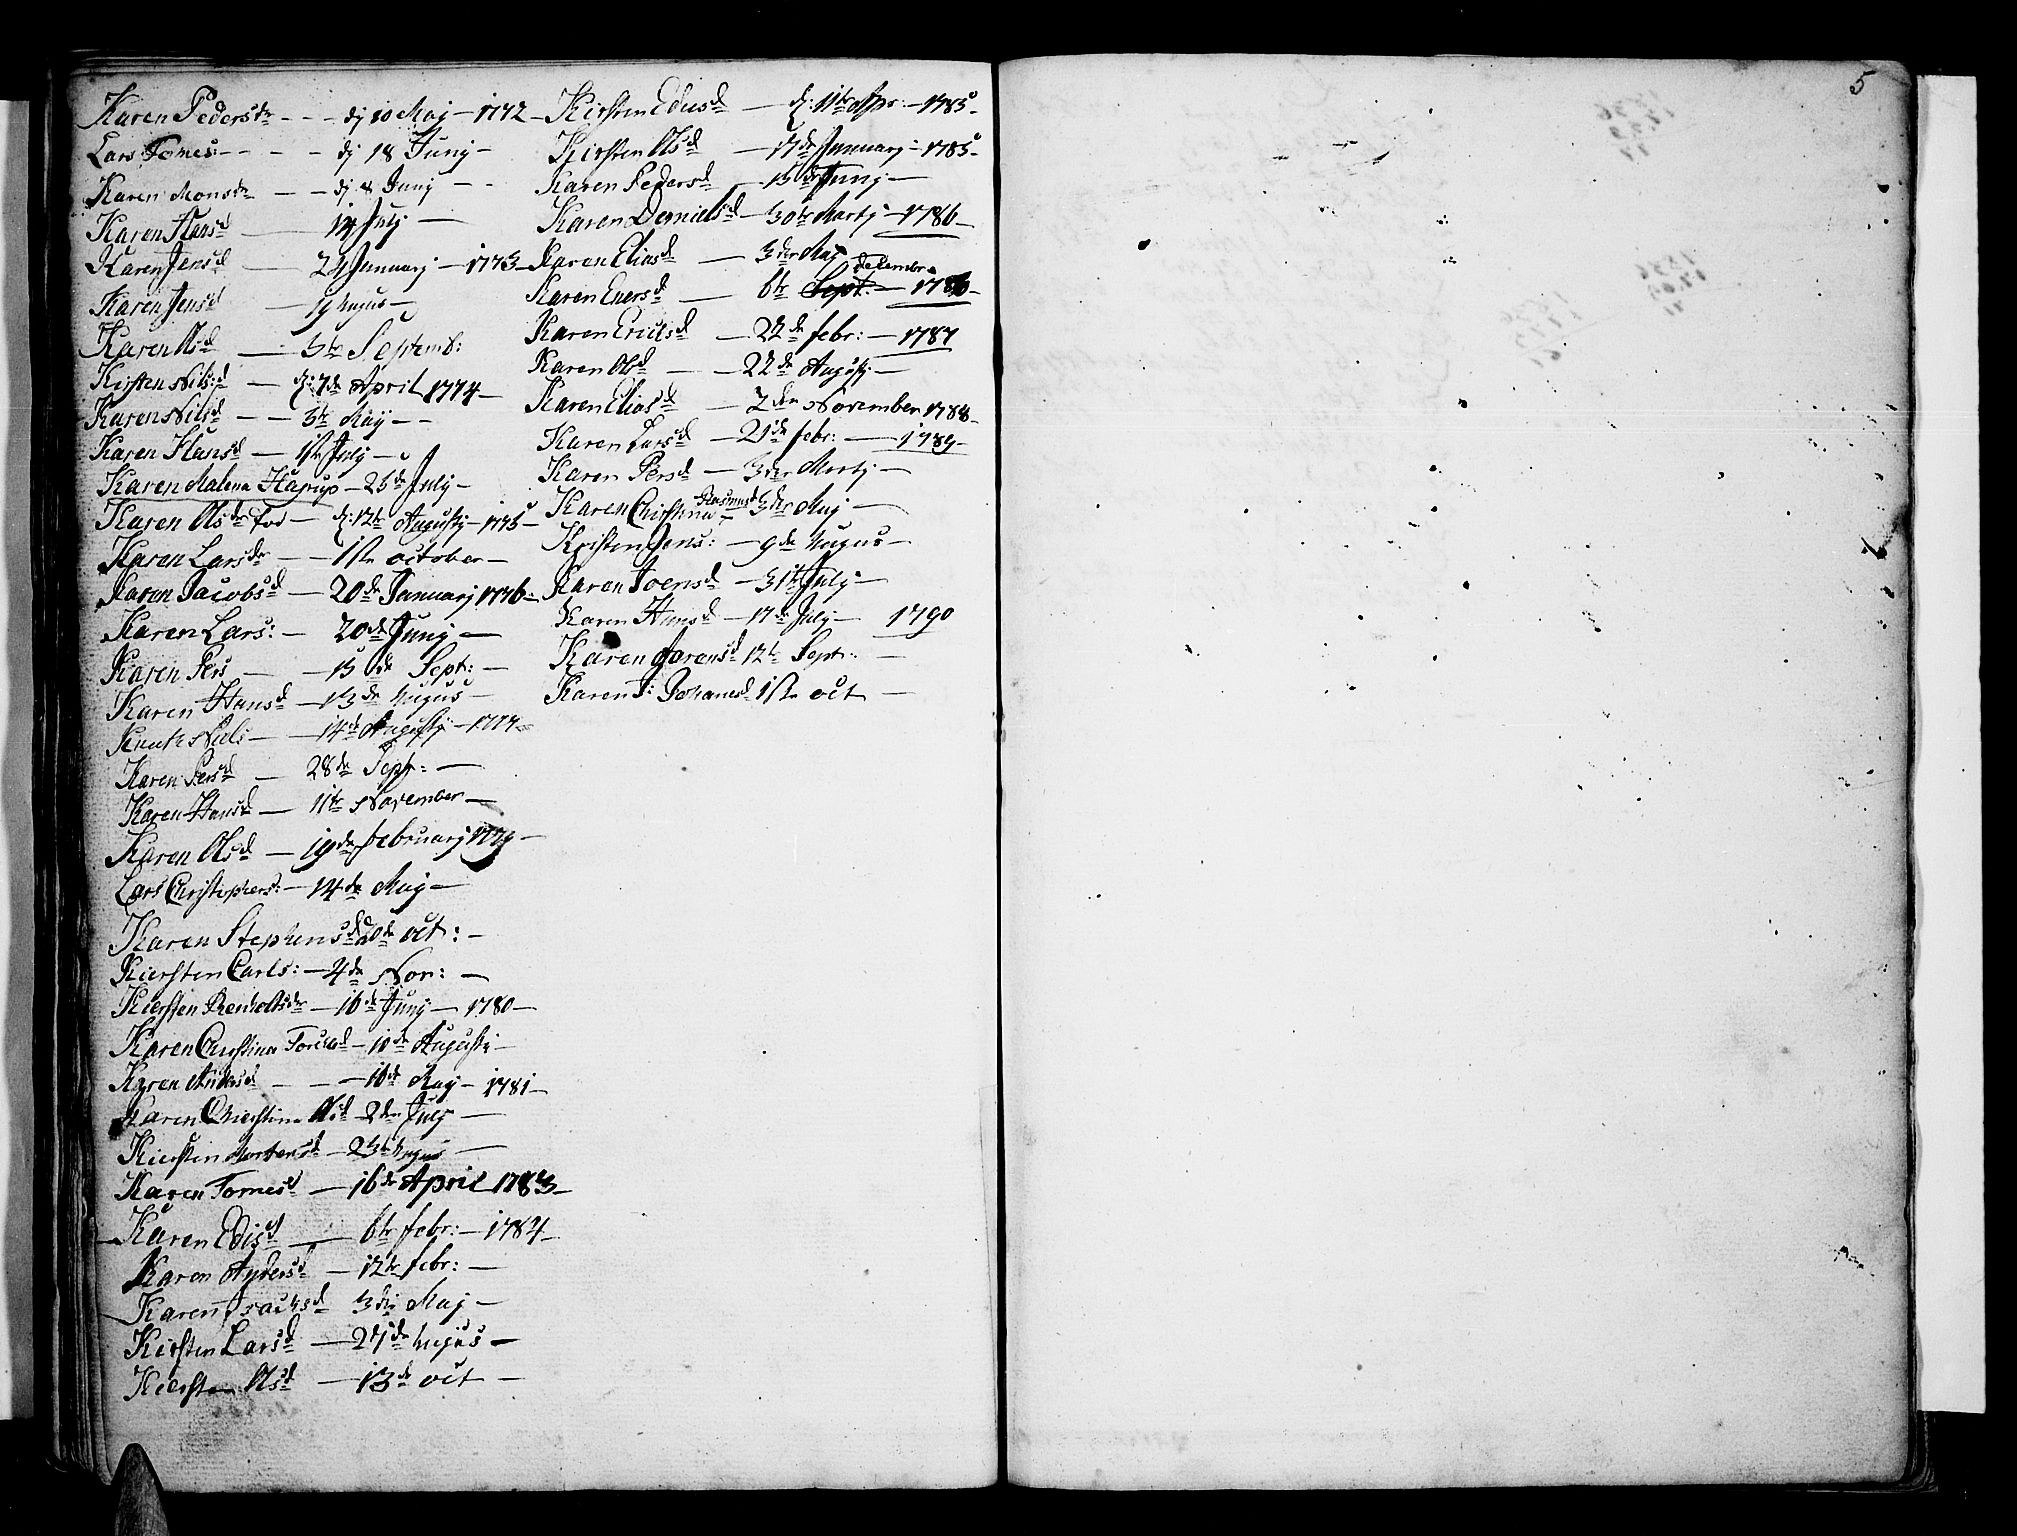 Karen Pedersdr - - - dj 10 Maj - 1772 -
Lars Tomes: - - - - dj 18 Junj -
Karen Monsdr - - dj 8 Junj - -
Karen Hansd - 14 Julj -
Karen Jensd - 24 Januarj - 1773 -
Karen Jensd - 19 Augus -
Karen Olsd - 3te Septemb:
Kirsten Nils:d - d: 7de April 1774 -
Karen Nilsd - - 3te Maij - -
Karen Hansd - 1ste Julij -
Karen Malena Harup - 26de Julij -
Karen Olsdr - d: 12te Augustj - 1775 -
Karen Larsdr - 1ste october -
Karen Jacobsd - 20de Januarj 1776 -
Karen Lars: - 20de Junij -
Karen Pers - 15de Sept: -
Karen Hansd - 13de Augus -
Knuth Nils - 14de Augustij - 1777 -
Karen Persd - 28de Sept: -
Karen Hansd - 11te November -
Karen Olsd - 19de februarj 1779 -
Lars Christophers: - 14de Maij -
Karen Stephensd 20de oct: -
Kiersten Carls: - 4de Nov: -
Kiersten Renholtsdr - 16de Junij - 1780 -
Karen Christina - 10de Augusti -
Karen Andersd - - - 16de Maij - 1781 -
Karen Chierstina Olsd - 2den Julij -
Kiersten Mortensd - 23de Augus -
Karen Tomesd - 16de April 1783 -
Karen Edisd - 6te febr: - 1784 -
Karen Andersd - 12te febr: -
Karen Isachsd 3die Maij -
Kiersten Larsd - 27de Augus -
Kiersten Olsd - 13de oct -
Kiersten Ediusd - d: 11te Apr: - 1785 -
Kiersten Olsd - 17de Januarj - 1785 -
Karen Pedersd - 15de Junij -
Karen Danielsd - 30te Martj - 1786 -
Karen Eliasd - 3die Maij
Karen Enersd - 6te Sept: decembr - 1786 -
Karen Ericksd - 22de febr: - 1787
Karen Olsd - - 22de Augustj -
Karen Eliasd - 2den November 1788 -
Karen Larsd - 21de febr: - 1789 -
Karen Persd - 3die Martj -
Karen Christina Rasmusd 3die Maij -
Kirsten Jens: - 9de Augus -
Karen Joensd - 31te Julij -
Karen Hansd - 17de Julij - 1790
Karen Jorensd 12te Sept: -
Karen T: Johanesd 1ste oct -
5